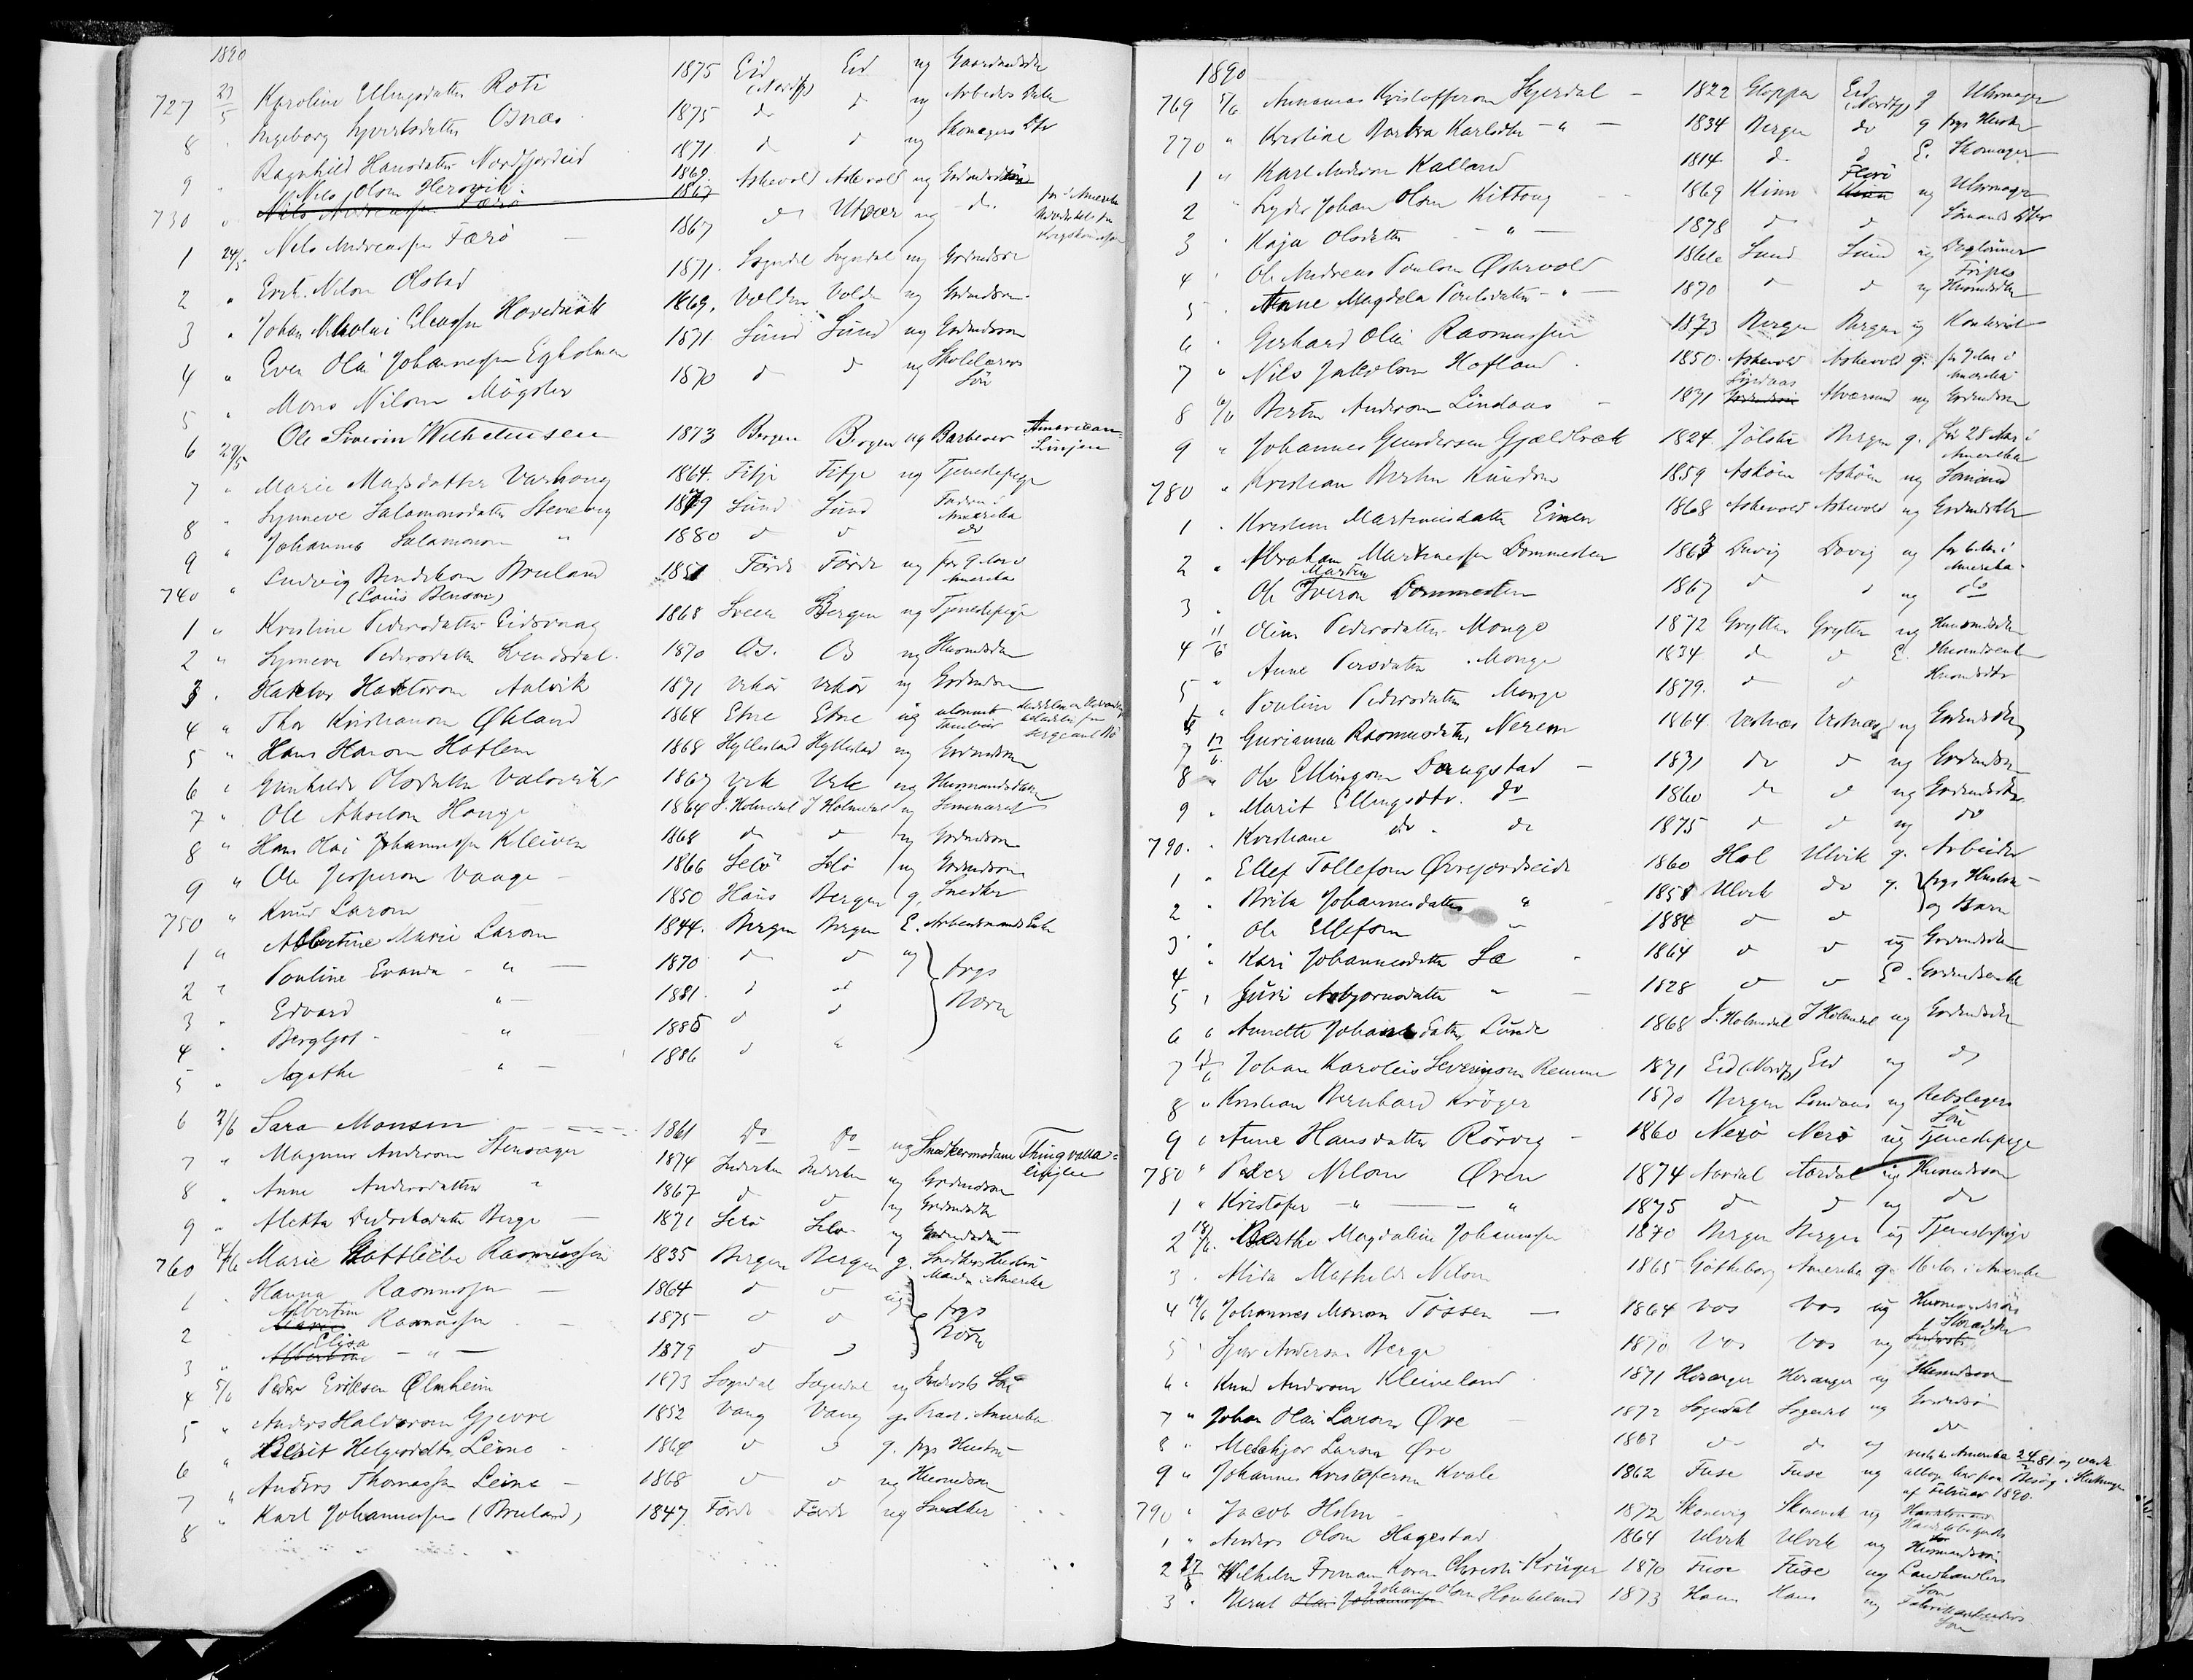 1890
727 23/5 Karoline Ellingsdatter Roti 1875 Eid (Nordfj) Eid ug Gaardmdstr
8 " Ingeborg Sjvertsdatter Osnæs 1875 do d ug Arbeiders Datter
9 " Ragnhild Hansdatter Nordfjordeid 1871 d d ug Skomagers Dtr
730 " Nils Olsen Herøvik 1869 Askevold Askevold ug
Nils Andreassen Færø 1867
1 24/5 Nils Andreassen Færø 1867 do Utvær ug do
2 " Erik Nilsen Olstad 1871 Sogndal Sogndal ug Grdmdsøn
3 " Johan Nikolai Eleasen Hovednak 1869 Volden Volden ug Grdmdsøn
4 " Even Olai Johannessen Egholmen 1871 Sund Sund ug Grdmdsøn
5 " Mons Nilsen Møgster 1870 d d ug Skolelærers Søn
6 29/5 Ole Siverin Wilhelmsen 1873 Bergen Bergen ug Barberer American Linjen
7 " Marie Madsdatter Varhoug 1864 Fitje Fitje ug Tjenestepige
8 " Synneve Salamonsdatter Stenevig 1879 Sund Sund Faderen i Amerika
9 " Johannes Salamonsen " 1880 d d do
740 " Ludvig Bendiksen Bruland (Louis Benson) 1851 Førde Førde ug før 9 Aar i Amerika
1 " Kristine Pedersdatter Eidsvaag 1868 Sveen Bergen ug Tjenestepige
2 " Synneve Pedersdatter Svendsdal 1870 Os Os ug Husmdsdtr
3 " Haktor Haktorsen Aalvik 1871 Vikør Vikør ug Grdmdsøn
4 " Thor Kristiansen Økland 1864 Etne Etne ug
5 " Hans Hansen Hatlem 1868 Hyllestad Hyllestad ug Grdmdsøn
6 " Gunhilde Olsdatter Valsvik 1867 Vik Vik ug Husmandsdatter
7 " Ole Akselsen Hauge 1864 I. Holmedal I Holmedal ug Seminarist
8 " Hans Olai Johannessen Kleiven 1868 d d ug Grdmdsøn
9 " Ole Jespersen Vaage 1866 Selø Selø ug Grdmdsøn
750 " Knud Larsen 1850 Haus Bergen g. Snedker
1 " Albertine Marie Larsen 1844 Bergen Bergen E. Arbeidsmands Enke
2 " Pouline Evanda " 1870 d d ug frgs
3 " Edvard " 1881 d d Børn
4 " Bergljot " 1885 d d
5 " Agathe " 1886 d "
6 2/6 Sara Monsen 1861 Do Do ug Thingvalla linjen
7 " Magnus Andersen Stensager 1874 Inderken Inderken ug Grdmdsøn
8 " Anne Andersdatter " 1867 d d ug Grdmdsdtr
9 " Alette Didriksdatter Berge 1871 Selø Selø ug Grdmdsdtr
760 4/6 Marie Gottliebe Rasmussen 1835 Bergen Bergen g. Snedkers Hustru Manden i Amerika
1 " Hanna Rasmussen 1864 d d ug frgs
2 Albertine Marie Rasmussen 1875 d d Børn
3 " Elisa Albertine " 1879 d d
4 5/6 Peder Eriksen Ølmheim 1873 Sogndal Sogndal ug Indersts Søn
5 " Anders Halvorsen Gjevre 1852 Vang Vang g. 7 Aar i Amerika
6 " Berit Helgesdtr Leine 1864 d d g. frgs Hustru
7 " Anders Thomassen Leine 1868 d d ug Husmdsøn
8 " Karl Johannessen (Bruland) 1847 Førde Førde ug Snedker
1890
769 5/6 Annanias Kristoffersen Skjerdal 1822 Gloppen Eid (Nordfj) g Uhrmager
770 " Kristine Barbra Karlsdtr " 1834 Bergen do g frgs Hustr
1 " Karl Andersen Kalland 1814 d d E. Skomager
2 " Lyder Johan Olsen Kittang 1869 Kinn Florø Kinn ug Uhrmager
3 " Kaja Olsdatter " 1878 d d Sømands Dtr
4 " Ole Andreas Poulsen Østervold 1866 Sund Sund ug Dagløner
5 " Anne Magdela Poulsdatter " 1870 d d ug Husmdsdtr
6 " Gerhard Olai Rasmussen 1873 Bergen Bergen ug Kontorist
7 " Nils Jakobsen Hofland 1850 Askevold Askevold g. før 7 Aar i Amerika
8 6/6 Bertin Andersen Lindaas 1871 Lindaas Alversund ug Grdmdsøn
9 " Johannes Gundersen Gjældbræk 1824 Jølster Bergen g. før 28 Aar i Amerika
780 " Kristian Bertin Knudsen 1859 Askøen Askøen ug Sømand
1 " Kristine Martinusdatter Einen 1868 Askevold Askevold ug Grdmdsdtr
2 " Abraham Martinessen Dommesten 1863 Davig Davig ug før 6 Aar i Amerika
3 " Ole Martin Iversen Dommesten 1867 d d ug do
4 11/6 Oline Pedersdatter Monge 1872 Grytten Grytten ug Husmdsdtr
5 " Anne Persdatter Monge 1834 d d E. Husmdsenke
6 " Pouline Pedersdatter Monge 1879 d d Husmdsdtr
7 12/6 Gurianna Rasmusdatter Nerem 1864 Vestnæs Vestnæs ug Grdmdsdtr
8 " Ole Ellingsen Daugstad 1871 do d ug Grdmdsøn
9 " Marit Ellingsdtr. do 1860 do d ug Grdmdsdtr
790. " Kristiane do do 1875 d d ug do
1 " Ellef Tollefsen Ørrefjordseide 1860 Hol Ulvik g. Arbeider
2 " Brita Johannesdatter " 1858 Ulvik do g. frgs Hustru
3 " Ole Ellefsen " 1884 d d og Barn
4 " Kari Johannesdatter Læ 1864 d d ug Grdmdsdtr
5 " Guri Asbjørnsdatter " 1828 d d E. Grdmdsenke
6 " Annette Johannesdatter Lunde 1868 I. Holmedal I Holmedal ug Grdmdsdtr
7 13/6 Johan Karolius Severinsen Remme 1871 Eid (Nordfj) Eid ug d
8 " Kristian Bernhard Krøger 1870 Bergen Lindaas ug Rebslagers Søn
9 " Anne Hansdatter Rørvig 1860 Nerø Nerø ug Tjenestepige
780 " Peder Nilsen Øren 1874 Aardal Aardal ug Husmdsøn
1 " Kristofer " " 1875 do d ug do
2 18/6 Berthe Magdaline Johannessen 1870 Bergen Bergen ug Tjenestepige
3 " Alida Mathilde Nilsen 1865 Gøtheborg Amerika g. 16 Aar i Amerika
4 19/6 Johannes Monsen Tøssen 1864 Vos Vos ug
5 " Sjur Andersen Berge 1870 Vos Vos ug
6 " Knud Andersen Kleiveland 1871 Hosanger Hosanger ug Husmdsøn
7 " Johan Olai Larsen Øre 1872 Sogndal Sogndal ug Grdmdsøn
8 " Melchior Larsen Øre 1863 d do ug do
9 " Johannes Kristofersen Kvale 1862 Fuse Fuse ug reist til Amerika 24/2 81 og vendt atter her paa Besøg i Slutningen af Februar 1890.
790 " Jacob Holm 1872 Skonevig Skonevik ug
1 " Anders Olsen Hagestad 1864 Ulvik Ulvik ug Husmandssøn
2 17/6 Wilhelm Frman Koren Christi Krüger 1870 Fuse Fuse ug Landhandlers Søn
3 " Bernt Olai Johannessen Johan Olsen Haukeland 1873 Haus Haus ug Fabrikarbeiders Søn